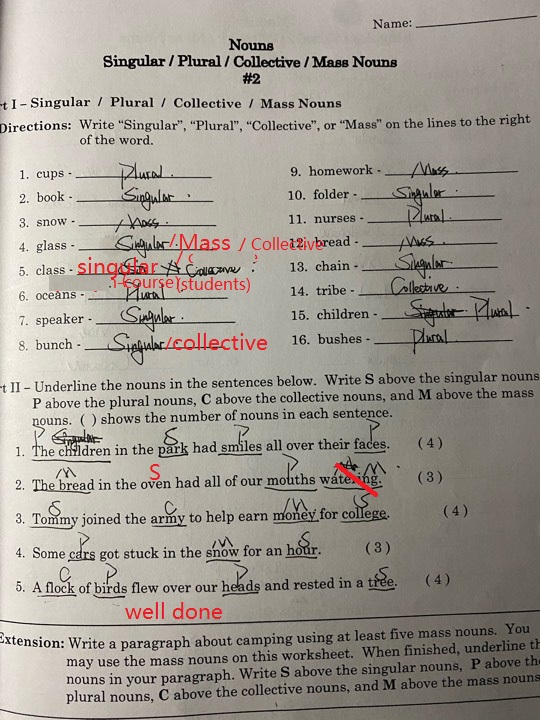 Name:
Nouns
Singular / Plural / Collective / Mass Nouns
#2
rt I – Singular / Plural / Collective / Mass Nouns
Directions: Write “Singular”, “Plural”, “Collective”, or “Mass” on the lines to the right
of the word.
1. cups - Plural.
2. book - Singular.
3. snow - Mass.
4. glass - Singular. /Mass / Collective
5. class - singular / Collective.
1-course (students)
6. oceans - Plural.
7. speaker - Singular.
8. bunch - Singular/collective
9. homework - Mass.
10. folder - Singular.
11. nurses - Plural.
12. bread - Mass.
13. chain - Singular.
14. tribe - Collective.
15. children - Singular Plural.
16. bushes - Plural.
rt II – Underline the nouns in the sentences below. Write S above the singular nouns
P above the plural nouns, C above the collective nouns, and M above the mass
nouns. ( ) shows the number of nouns in each sentence.
P Singular S P P
1. The children in the park had smiles all over their faces. (4)
M S P M
2. The bread in the oven had all of our mouths watering. (3)
S C M S
3. Tommy joined the army to help earn money for college. (4)
P M S
4. Some cars got stuck in the snow for an hour. (3)
C P P S
5. A flock of birds flew over our heads and rested in a tree. (4)
well done
Extension: Write a paragraph about camping using at least five mass nouns. You
may use the mass nouns on this worksheet. When finished, underline th
nouns in your paragraph. Write S above the singular nouns, P above the
plural nouns, C above the collective nouns, and M above the mass nouns